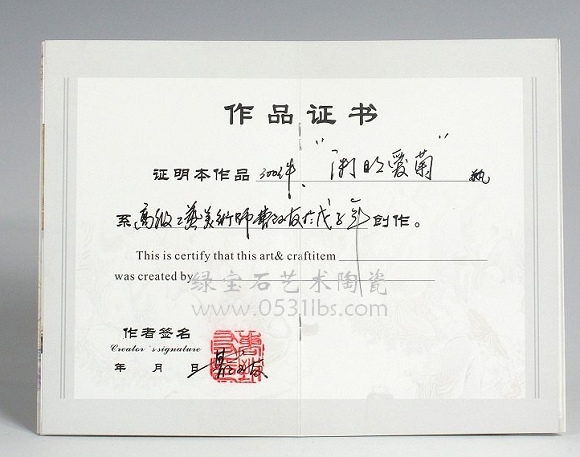 作品证书
证明本作品 "渊明爱菊" 瓶
系高级工艺美术师 于戊子年创作。
This is certify that this art& craftitem
was created by
绿宝石艺术陶瓷
www.0531lbs.com
作者签名
Creator's signature
年 月 日